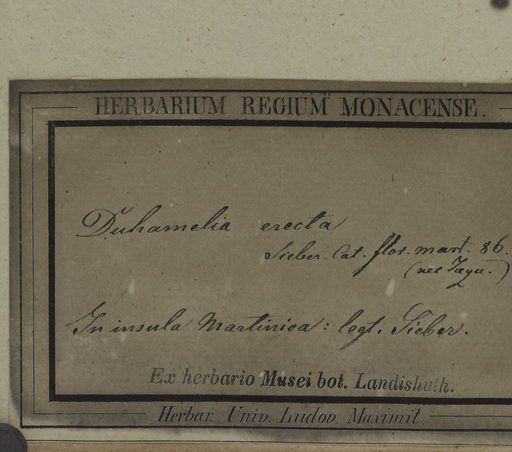 HERBARIUM REGIUM MONACENSE.
Duhamelia erecta
Sieber. Cat. flor. mart. 86.
(nec Jaqu.)
In insula Martinica: legt. Sieber.
Ex herbario Musei bot. Landishuth.
Herbar. Univ. Ludov. Maximil.